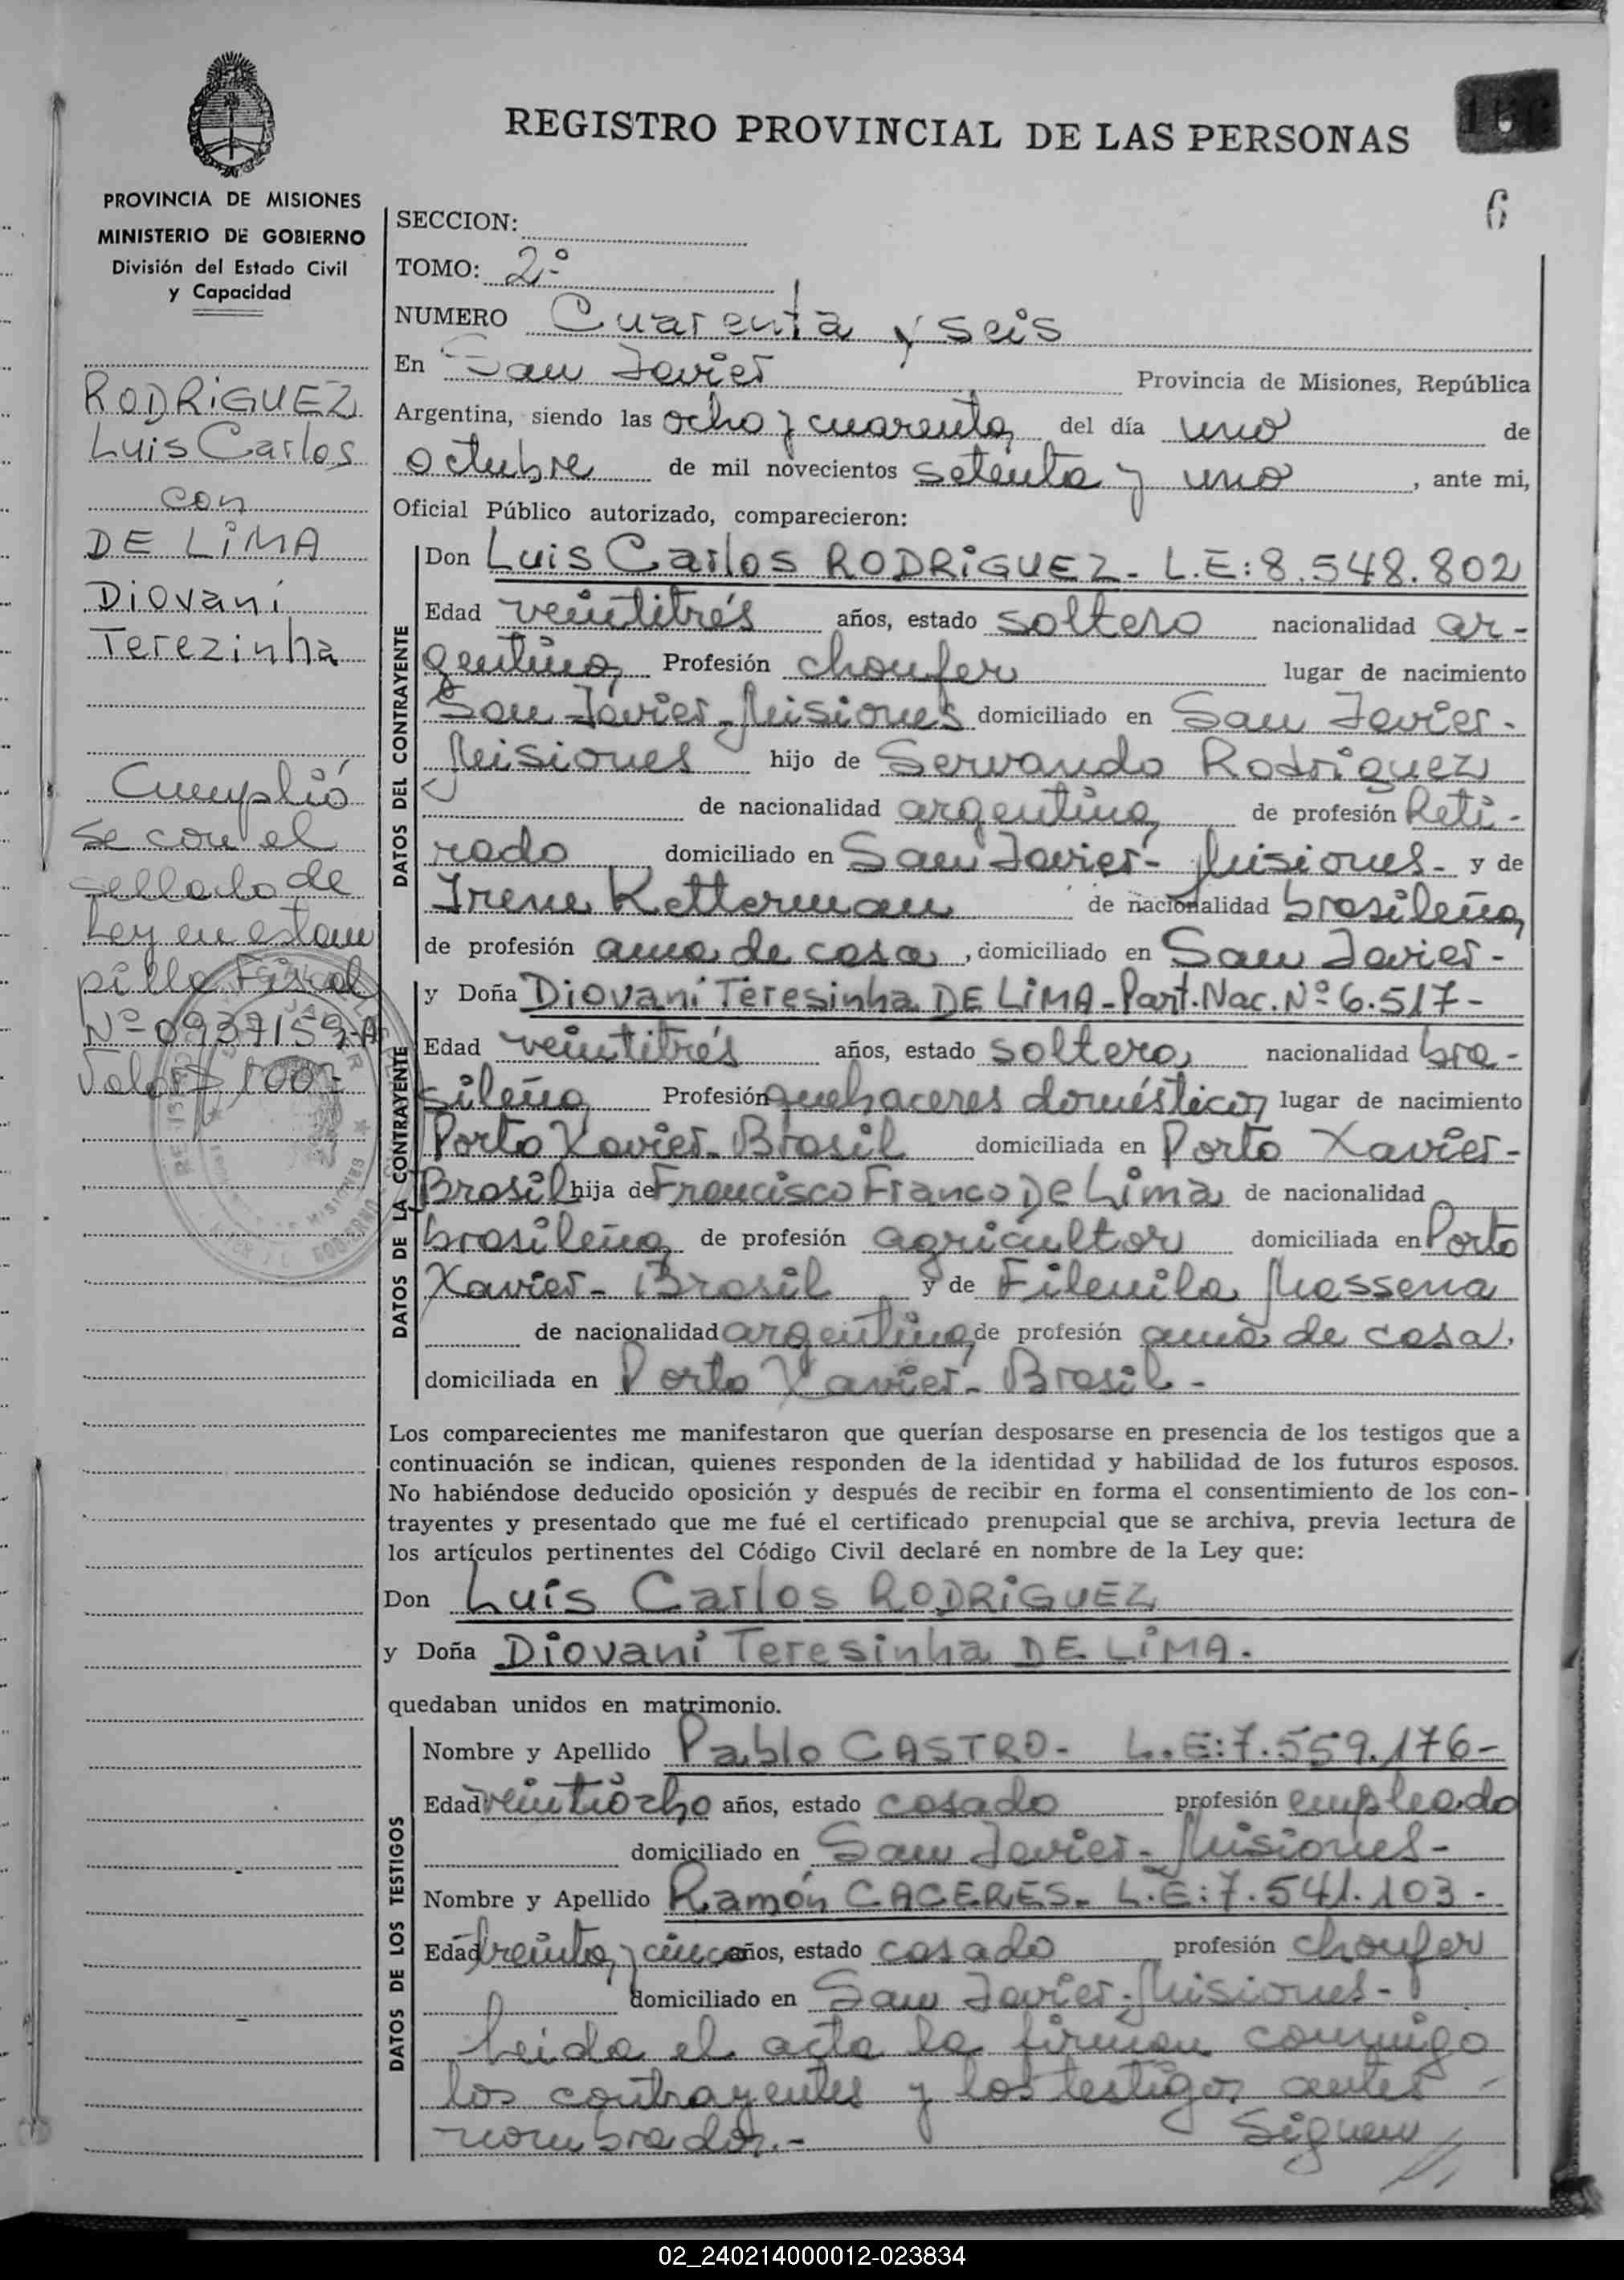 REGISTRO PROVINCIAL DE LAS PERSONAS
6
PROVINCIA DE MISIONES
MINISTERIO DE GOBIERNO
División del Estado Civil
y Capacidad
RODRIGUEZ
Luis Carlos
con
DE LIMA
Diovani
Terezinha
Cumplió
se con el
sellado de
Ley en estam
pilla Fiscal
Nº 0937159-A
Valor $ 100-
SECCION:
TOMO: 2º
NUMERO Cuarenta y seis
En San Javier Provincia de Misiones, República
Argentina, siendo las ocho y cuarenta del día uno de
octubre de mil novecientos setenta y uno, ante mi,
Oficial Público autorizado, comparecieron:
DATOS DEL CONTRAYENTE
Don Luis Carlos RODRIGUEZ - L.E: 8.548.802
Edad veintitrés años, estado soltero nacionalidad ar-
gentina Profesión choufer lugar de nacimiento
San Javier - Misiones domiciliado en San Javier -
Misiones hijo de Servando Rodriguez
de nacionalidad argentina de profesión Reti-
rado domiciliado en San Javier - Misiones - y de
Irene Ketterman de nacionalidad brasileña
de profesión ama de casa, domiciliado en San Javier -
DATOS DE LA CONTRAYENTE
y Doña Diovani Teresinha DE LIMA - Part. Nac. Nº 6.517 -
Edad veintitrés años, estado soltera nacionalidad bra-
sileña Profesión quehaceres domésticos lugar de nacimiento
Porto Xavier - Brasil domiciliada en Porto Xavier -
Brasil hija de Francisco Franco De Lima de nacionalidad
brasileña de profesión agricultor domiciliada en Porto
Xavier - Brasil y de Filenila Massena
de nacionalidad argentina de profesión ama de casa,
domiciliada en Porto Xavier - Brasil -
Los comparecientes me manifestaron que querían desposarse en presencia de los testigos que a
continuación se indican, quienes responden de la identidad y habilidad de los futuros esposos.
No habiéndose deducido oposición y después de recibir en forma el consentimiento de los con-
trayentes y presentado que me fué el certificado prenupcial que se archiva, previa lectura de
los artículos pertinentes del Código Civil declaré en nombre de la Ley que:
Don Luis Carlos RODRIGUEZ
y Doña Diovani Teresinha DE LIMA.
quedaban unidos en matrimonio.
DATOS DE LOS TESTIGOS
Nombre y Apellido Pablo CASTRO - L.E: 7.559.176 -
Edad veintiocho años, estado casado profesión empleado
domiciliado en San Javier - Misiones -
Nombre y Apellido Ramón CACERES - L.E: 7.541.103 -
Edad treinta y cinco años, estado casado profesión choufer
domiciliado en San Javier - Misiones -
Leida el acta la firman conmigo
los contrayentes y los testigos antes
nombrados. - Siguen //
02_240214000012-023834